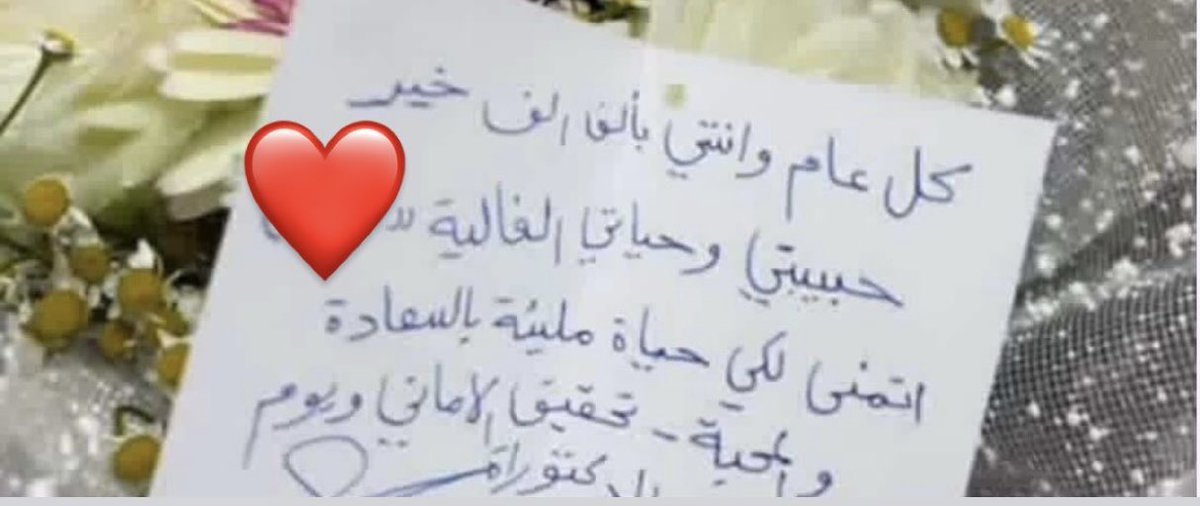 كل عام وانتي بألف الف خير
حبيبتي وحياتي الغالية "
اتمنى لكي حياة مليئة بالسعادة
والمحبة - تحقيق الاماني ويوم
الدكتوراة